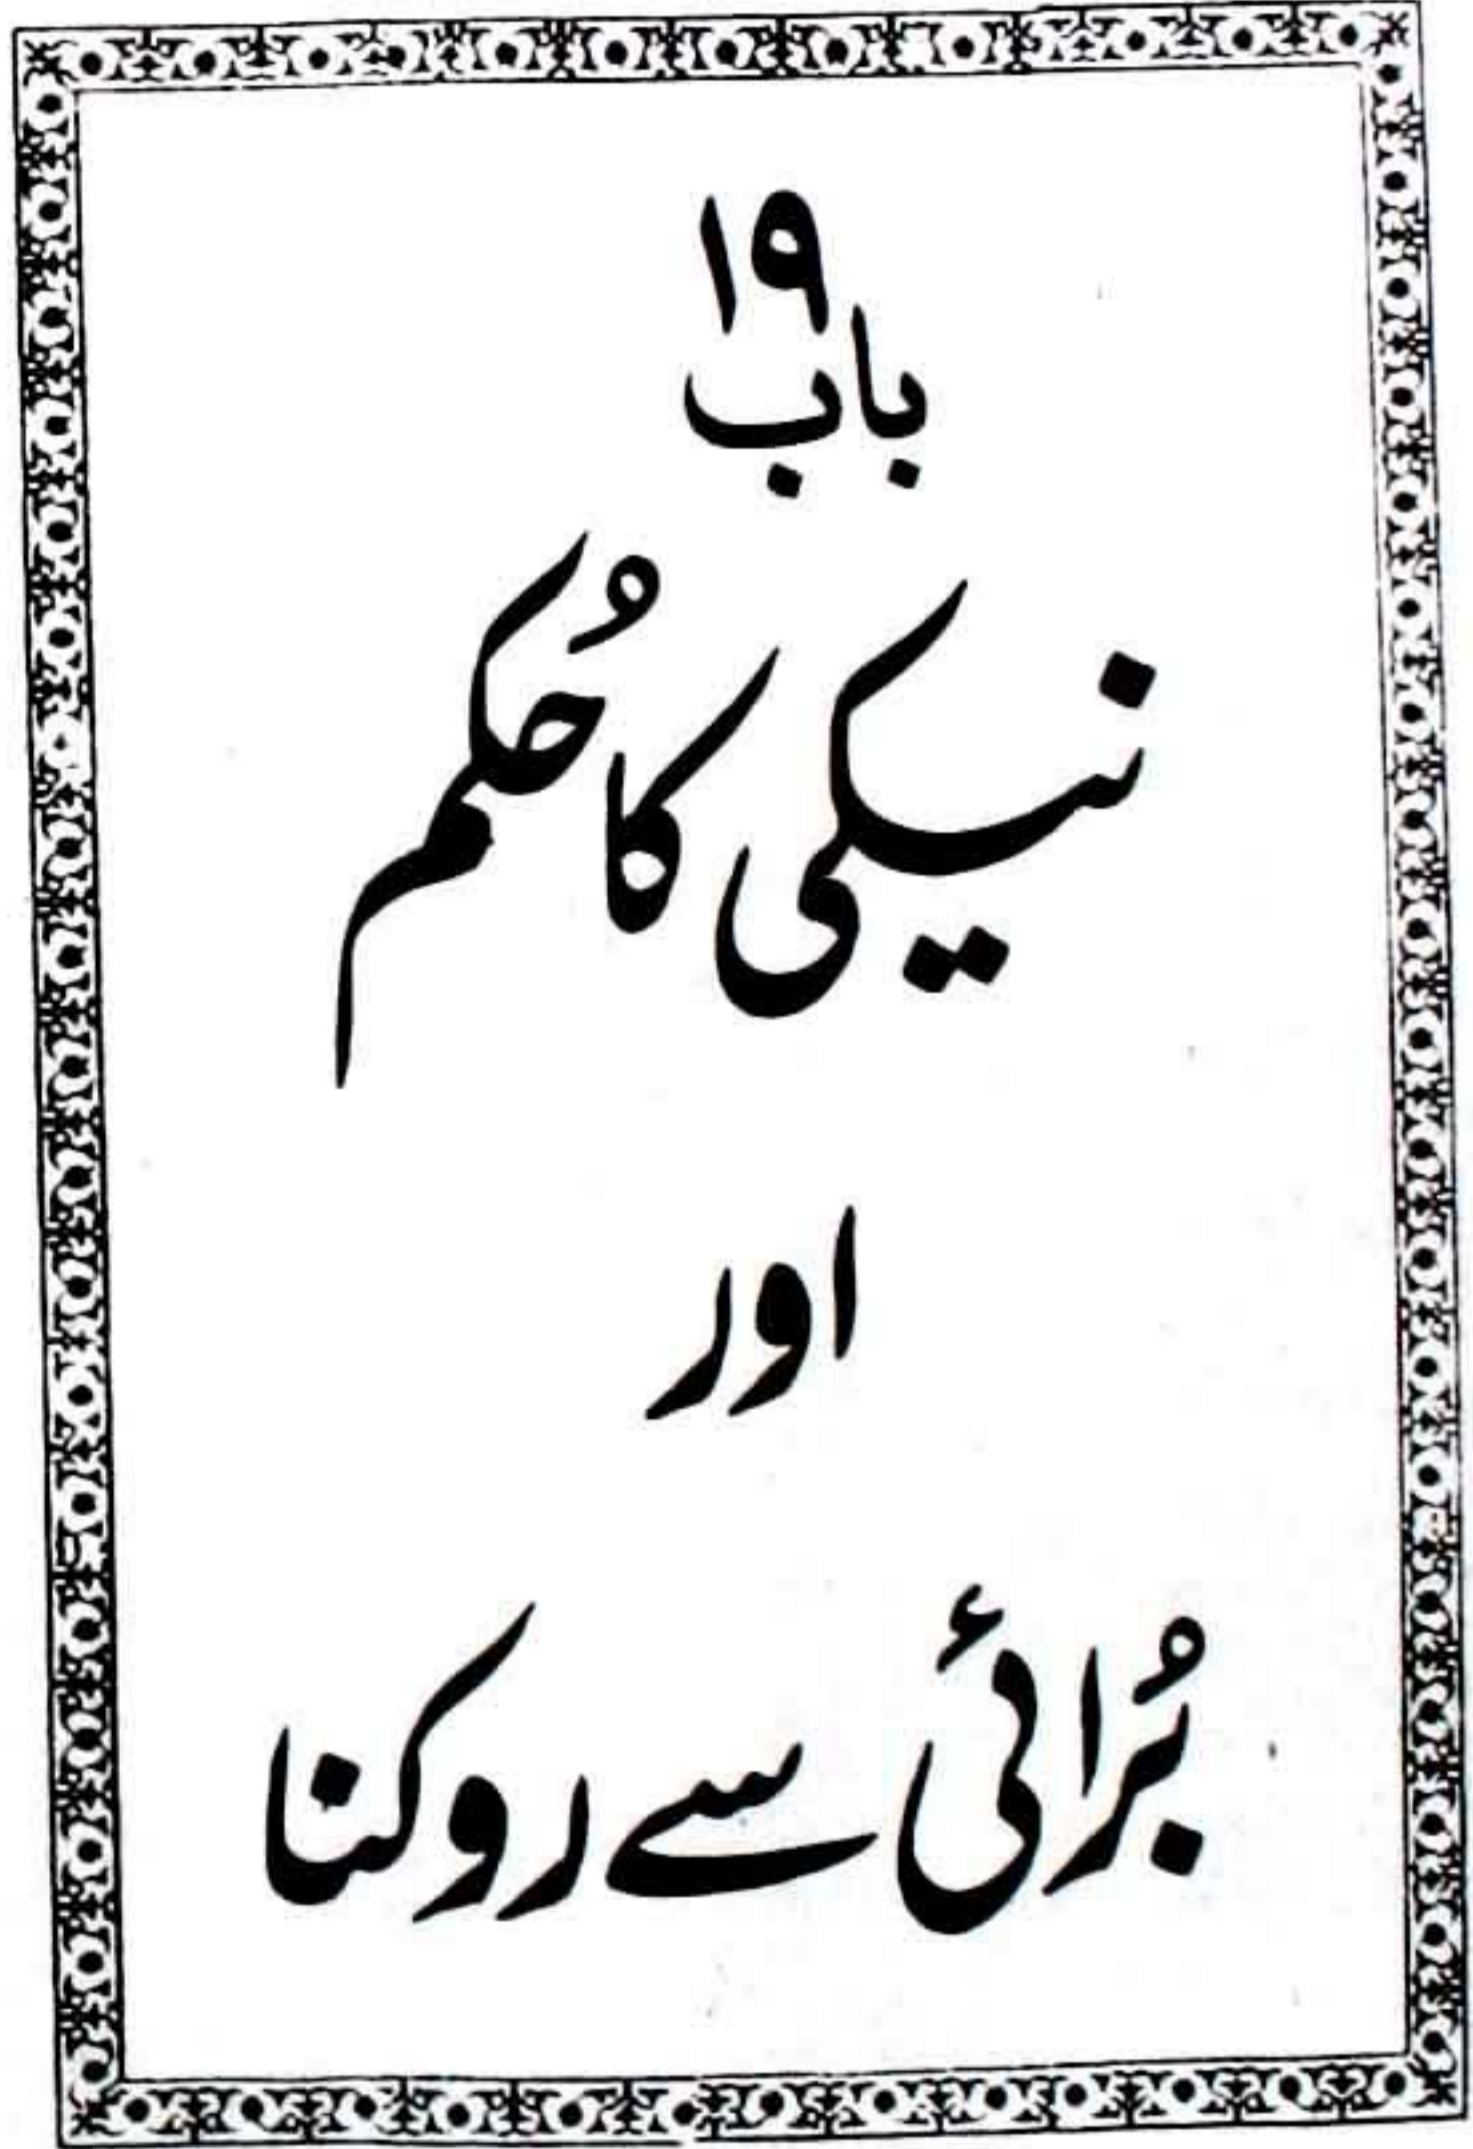 باب ۱۹
نیکی کا حُکم
اور
بُرائی سے روکنا